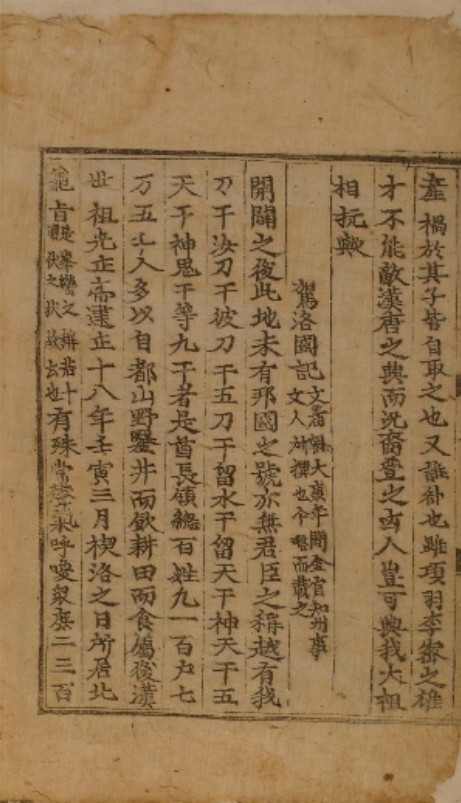 產禍於其子皆自取之也又誰咎也雖項羽李密之雄
才不能敵漢唐之興而況裔萱之凶人豈可與我大祖
相抗歟
駕洛國記文廟朝大康年間金官知州事
文人所撰也今略而載之
開闢之後此地未有邦國之號亦無君臣之稱越有我
刀干汝刀干彼刀干五刀干留水干留天干神天干五
天干神鬼干等九干者是酋長領總百姓九一百戶七
万五千人多以自都山野鑿井而飮耕田而食屬後漢
世祖光正帝建正十八年壬寅三月禊洛之日所居北
龜旨是峯巒之稱若十朋伏之狀故云也有殊常聲氣呼喚衆庶二三百